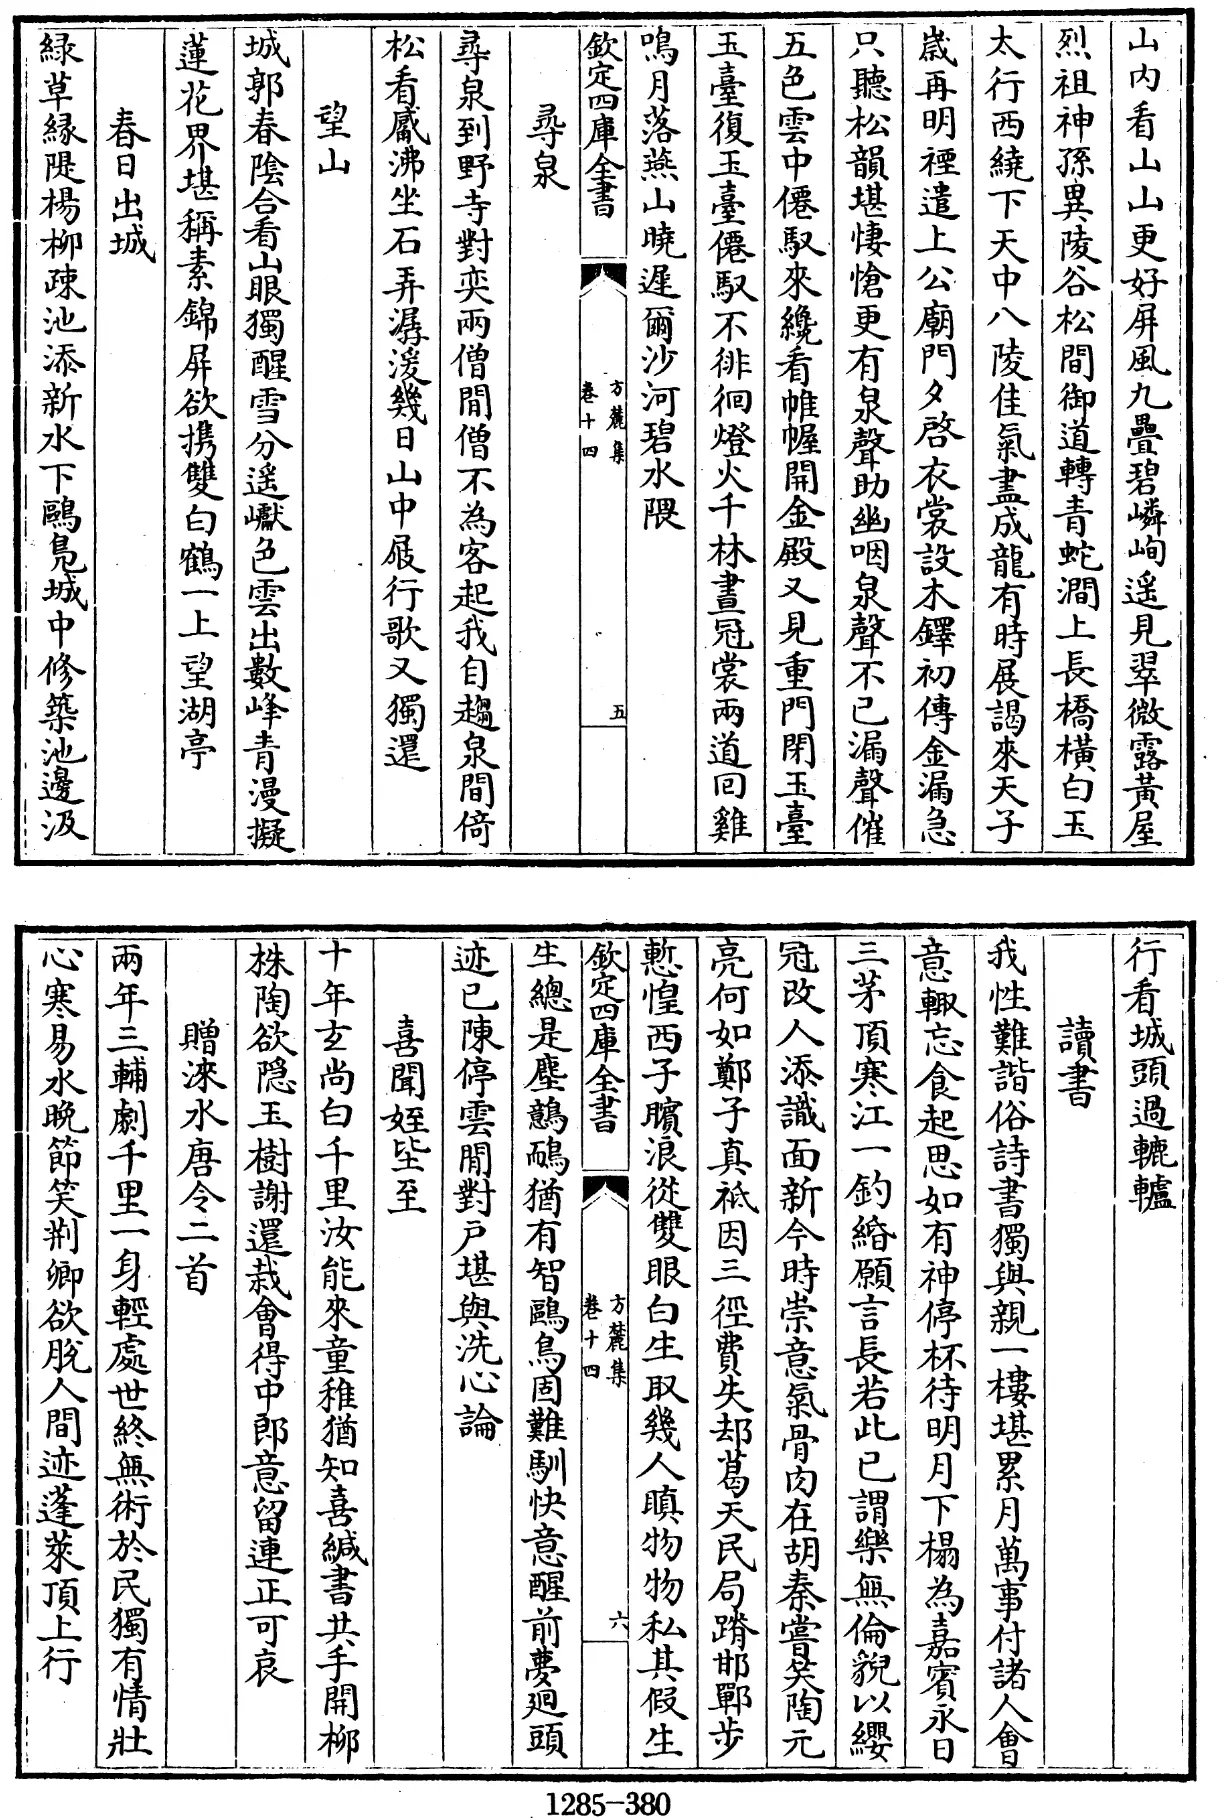 山内看山山更好屏風九疊碧嶙峋遥見翠微露黃屋
烈祖神孫異陵谷松間御道轉青蛇澗上長橋橫白玉
太行西繞下天中八陵佳氣盡成龍有時展謁來天子
歲再明禋遣上公廟門夕啓衣裳設木鐸初傳金漏急
只聽松韻堪悽愴更有泉聲助幽咽泉聲不已漏聲催
五色雲中僊馭來纔看帷幄開金殿又見重門閉玉臺
玉臺復玉臺僊馭不徘徊燈火千林晝冠裳兩道回雞
鳴月落燕山曉遲爾沙河碧水隈
欽定四庫全書
方麓集
卷十四
五
尋泉
尋泉到野寺對奕兩僧間僧不為客起我自趨泉間倚
松看觱沸坐石弄潺湲幾日山中屐行歌又獨還
望山
城郭春陰合看山眼獨醒雪分遥巘色雲出數峰青漫擬
蓮花界堪稱素錦屏欲携雙白鶴一上望湖亭
春日出城
緑草縁隄楊柳疎池添新水下鷗鳬城中修築池邊汲
行看城頭過轆轤
讀書
我性難諧俗詩書獨與親一樓堪累月萬事付諸人會
意輙忘食起思如有神停杯待明月下榻為嘉賓永日
三茅頂寒江一釣緡願言長若此已謂樂無倫貌以纓
冠改人添識面新今時崇意氣骨肉在胡秦嘗笑陶元
亮何如鄭子真祗因三徑費失却葛天民局蹐邯鄲步
慙惶西子臏浪從雙眼白生取幾人瞋物物私其假生
欽定四庫全書
方麓集
卷十四
六
生總是塵鷾鴯猶有智鷗鳥固難馴快意醒前夢廻頭
迹已陳停雲閒對戸堪與洗心論
喜聞姪坒至
十年玄尚白千里汝能來童稚猶知喜緘書共手開柳
株陶欲隠玉樹謝還栽會得中郎意留連正可哀
贈淶水唐令二首
兩年三輔劇千里一身輕處世終無術於民獨有情壯
心寒易水晚節笑荆卿欲脫人間迹蓬萊頂上行
1285-380